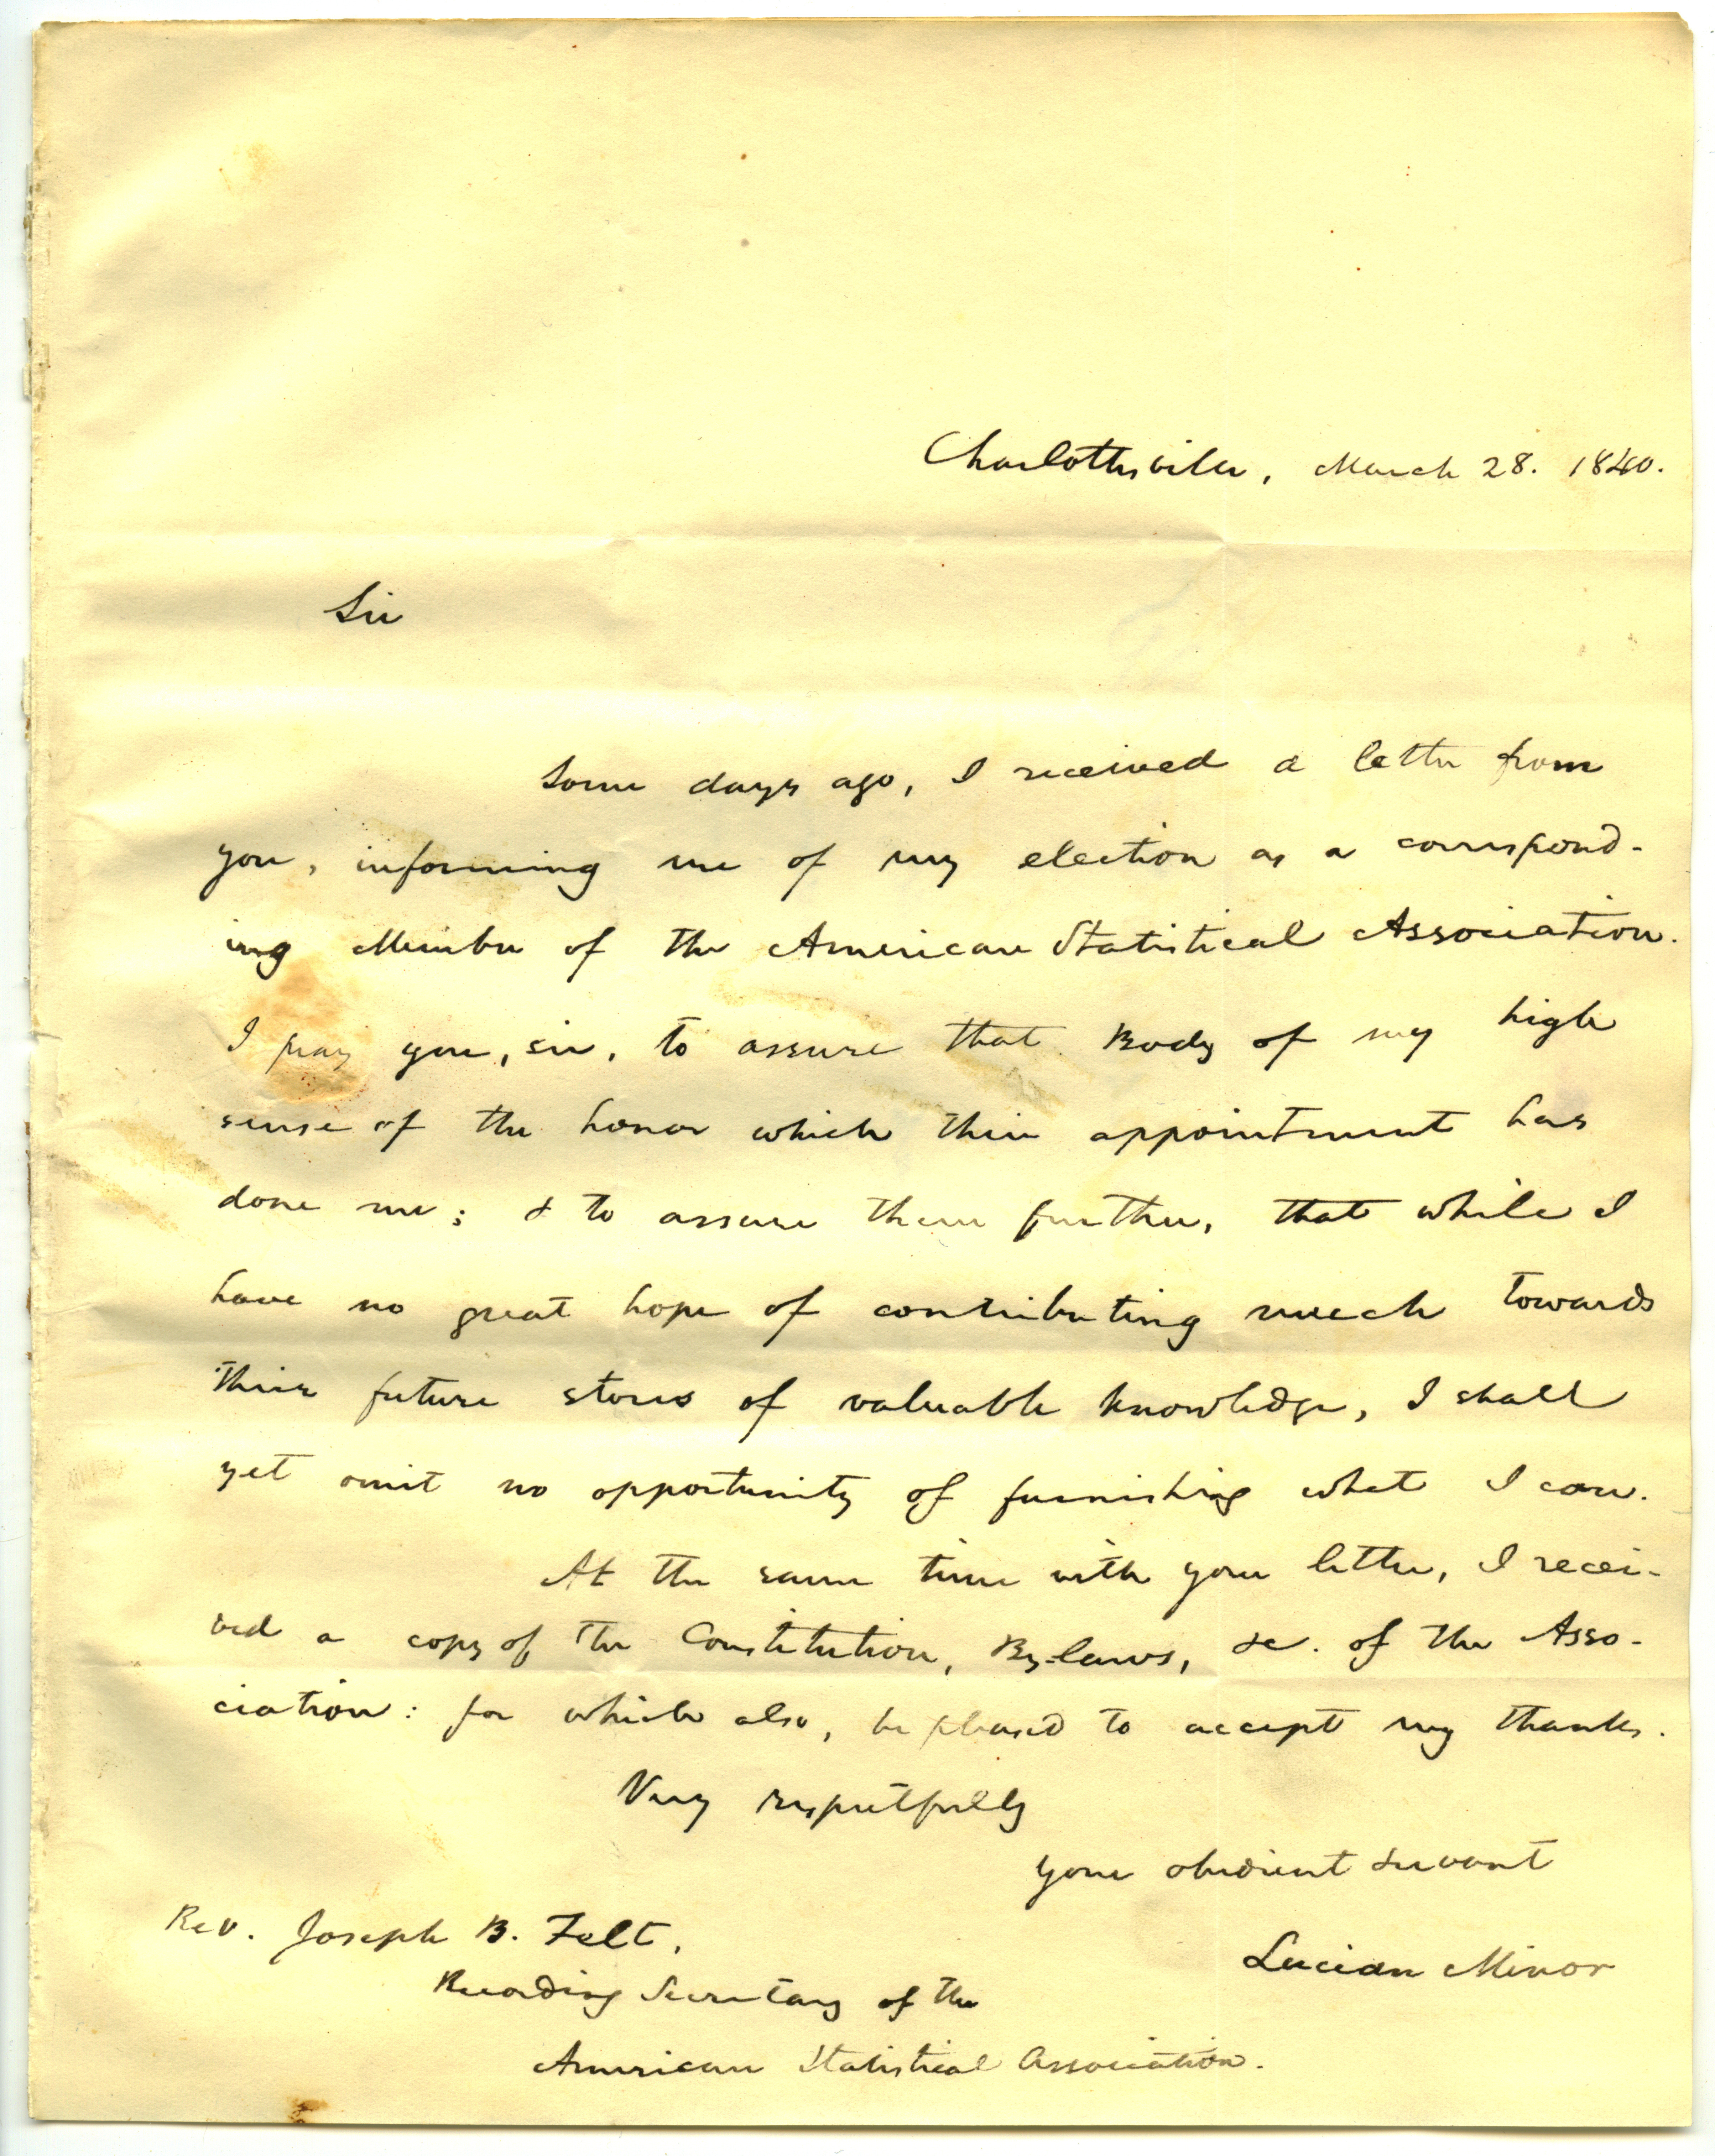 Charlottesville, March 28. 1840.
Sir
Some days ago, I received a letter from
you, informing me of my election as a correspond-
ing Member of the American Statistical Association.
I pray you, sir, to assure that Body of my high
sense of the honor which their appointment has
done me; & to assure them further, that while I
have no great hope of contributing much towards
their future stores of valuable knowledge, I shall
yet omit no opportunity of furnishing what I can.
At the same time with your letter, I recei-
ved a copy of the Constitution, By-laws, &c. of the Asso-
ciation: for which also, be pleased to accept my thanks.
Very respectfully
your obedient servant
Lucian Minor
Rev. Joseph B. Felt,
Recording Secretary of the
American Statistical Association.